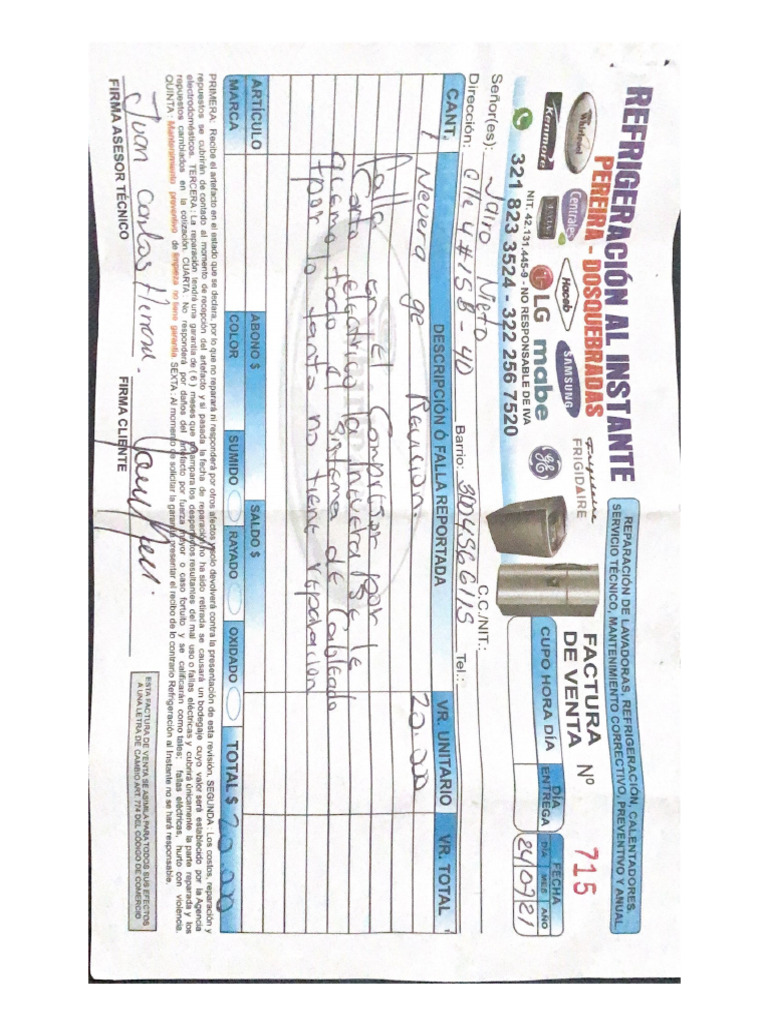 REFRIGERACIÓN AL INSTANTE
PEREIRA - DOSQUEBRADAS
REPARACIÓN DE LAVADORAS, REFRIGERACIÓN, CALENTADORES,
SERVICIO TÉCNICO, MANTENIMIENTO CORRECTIVO, PREVENTIVO Y ANUAL
Whirlpool
Centrales
Haceb
SAMSUNG
Frigidaire
FRIGIDAIRE
Kenmore
LG
mabe
GE
NIT. 42.131.445-9 - NO RESPONSABLE DE IVA
321 823 3524 - 322 256 7520
FACTURA
DE VENTA Nº 715
CUPO HORA DÍA
DÍA ENTREGA
FECHA
DÍA MES AÑO
240921
Señor(es): Jairo Nieto C.C./NIT.:
Dirección: Clle 4 # 15B-40 Barrio: 3004566115 Tel.:
CANT. DESCRIPCIÓN Ó FALLA REPORTADA VR. UNITARIO VR. TOTAL
1 Nevera ge Revicion. 20.00
Falla en el Comprisor por
Corto electrico la
quemo todo el sistema de Cableado
tpor lo tanto no tiene reparacion
ARTÍCULO ABONO $ SALDO $ TOTAL $ 20.00
MARCA COLOR SUMIDO RAYADO OXIDADO
PRIMERA: Recibe el artefacto en el estado que se declara, por lo que no reparará ni responderá por otros afectos y solo devolverá contra la presentación de esta revisión. SEGUNDA : Los costos, reparación y
repuestos se cubrirán de contado al momento de recepción del artefacto y si pasada la fecha de reparación no ha sido retirada se causará un bodegaje cuyo valor será establecido por la Agencia
electrodomésticos. TERCERA : La reparación tendrá una garantía de ( 6 ) meses que no ampara los desperfectos resultantes del mal uso o fallas eléctricas y cubrirá únicamente la parte reparada y los
repuestos cambiados en la cotización. CUARTA : No responderá por daños del artefacto por fuerza mayor o caso fortuito y se calificarán como tales: fallas eléctricas, hurto con violencia.
QUINTA : Mantenimiento preventivo de limpieza no tiene garantía SEXTA : Al momento de solicitar la garantía presentar el recibo de lo contrario Refrigeración al Instante no se hará responsable.
Juan Carlos Herrera.
FIRMA ASESOR TÉCNICO
FIRMA CLIENTE
ESTA FACTURA DE VENTA SE ASIMILA PARA TODOS SUS EFECTOS
A UNA LETRA DE CAMBIO ART. 774 DEL CÓDIGO DE COMERCIO